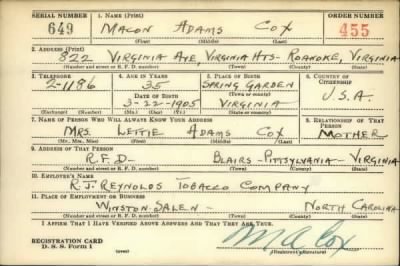 SERIAL NUMBER 1. NAME (Print) ORDER NUMBER
649 MACON ADAMS COX 455
(First) (Middle) (Last)
2. ADDRESS (Print)
822 VIRGINIA AVE, VIRGINIA HTS- ROANOKE, VIRGINIA
(Number and street or R. F. D. number) (Town) (County) (State)
3. TELEPHONE 4. AGE IN YEARS 5. PLACE OF BIRTH 6. COUNTRY OF CITIZENSHIP
2-1196 35 SPRING GARDEN
DATE OF BIRTH (Town or county)
3-22-1905 VIRGINIA U.S.A.
(Exchange) (Number) (Mo.) (Day) (Yr.) (State or country)
7. NAME OF PERSON WHO WILL ALWAYS KNOW YOUR ADDRESS 8. RELATIONSHIP OF THAT PERSON
MRS. LETTIE ADAMS COX MOTHER
(Mr., Mrs., Miss) (First) (Middle) (Last)
9. ADDRESS OF THAT PERSON
R.F.D- BLAIRS-PITTSYLVANIA-VIRGINIA
(Number and street or R. F. D. number) (Town) (County) (State)
10. EMPLOYER'S NAME
R.J. REYNOLDS TOBACCO COMPANY
11. PLACE OF EMPLOYMENT OR BUSINESS
WINSTON-SALEM- NORTH CAROLINA
(Number and street or R. F. D. number) (Town) (County) (State)
I AFFIRM THAT I HAVE VERIFIED ABOVE ANSWERS AND THAT THEY ARE TRUE.
REGISTRATION CARD
D. S. S. Form 1 M A Cox
(Registrant's signature)